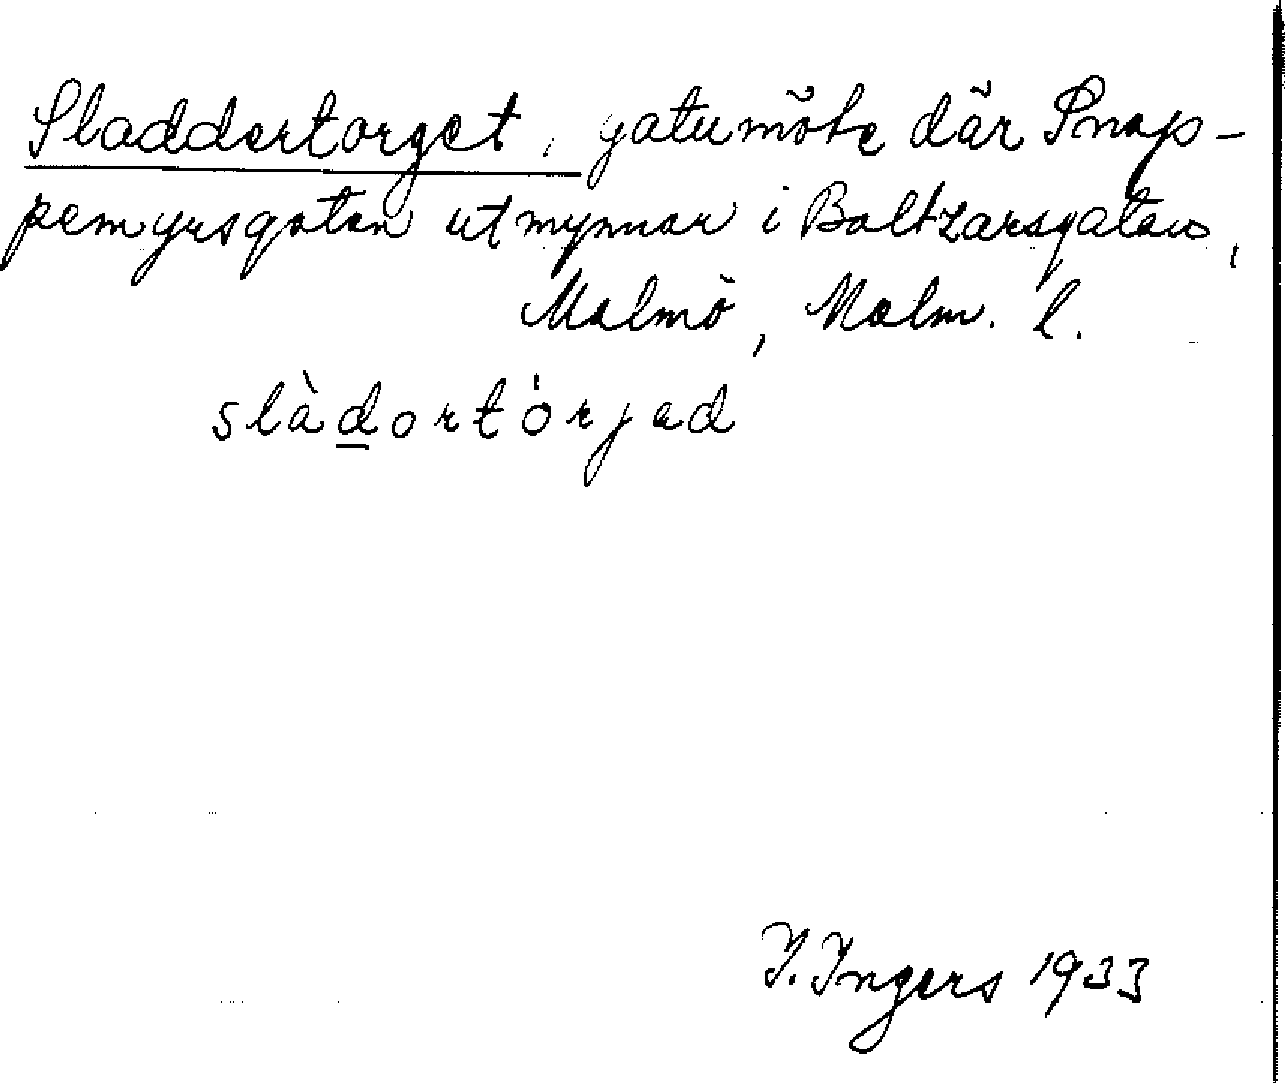 Sladdertorget, gatumöte där Snap-
pemyrsgatan utmynnar i Baltzarsgatan,
Malmö, Malm. l.
slàdortórjad
I. Ingers 1933